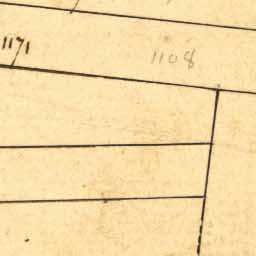 1171
1108